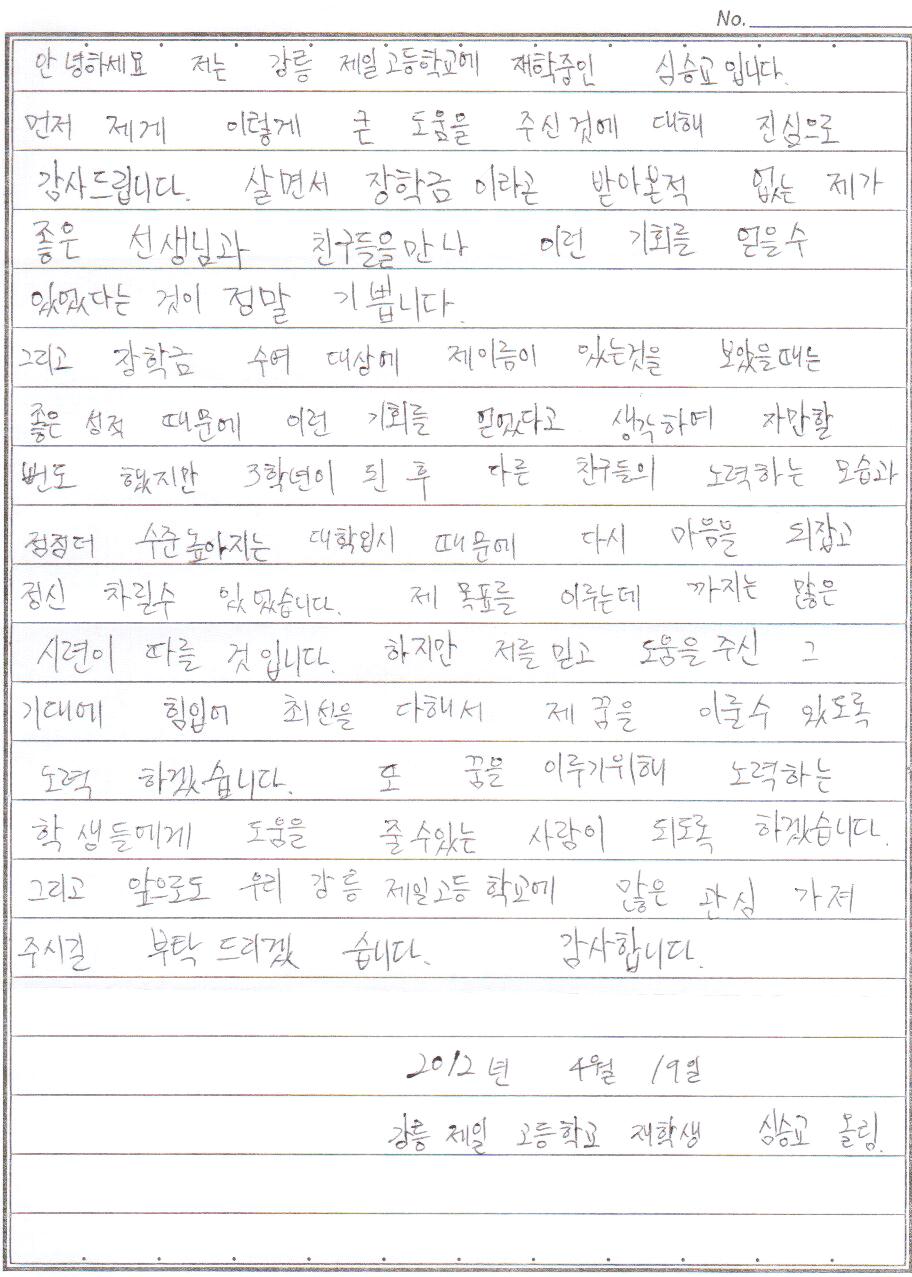 No.
안녕하세요 저는 강릉 제일고등학교에 재학중인 심승교입니다.
먼저 제게 이렇게 큰 도움을 주신것에 대해 진심으로
감사드립니다. 살면서 장학금이라곤 받아본적 없는 제가
좋은 선생님과 친구들을만나 이런 기회를 얻을수
있었다는 것이 정말 기쁩니다.
그리고 장학금 수여 대상에 제이름이 있는것을 보았을때는
좋은 성적 때문에 이런 기회를 얻었다고 생각하여 자만할
번도 했지만 3학년이 된 후 다른 친구들의 노력하는 모습과
점점더 수준높아지는 대학입시 때문에 다시 마음을 되잡고
정신 차릴수 있었습니다. 제 목표를 이루는데 까지는 많은
시련이 따를 것입니다. 하지만 저를 믿고 도움을 주신 그
기대에 힘입어 최선을 다해서 제 꿈을 이룰수 있도록
노력 하겠습니다. 또 꿈을 이루기위해 노력하는
학생들에게 도움을 줄수있는 사람이 되도록 하겠습니다.
그리고 앞으로도 우리 강릉 제일고등학교에 많은 관심 가져
주시길 부탁드리겠습니다. 감사합니다.
2012년 4월 19일
강릉 제일 고등학교 재학생 심승교 올림.